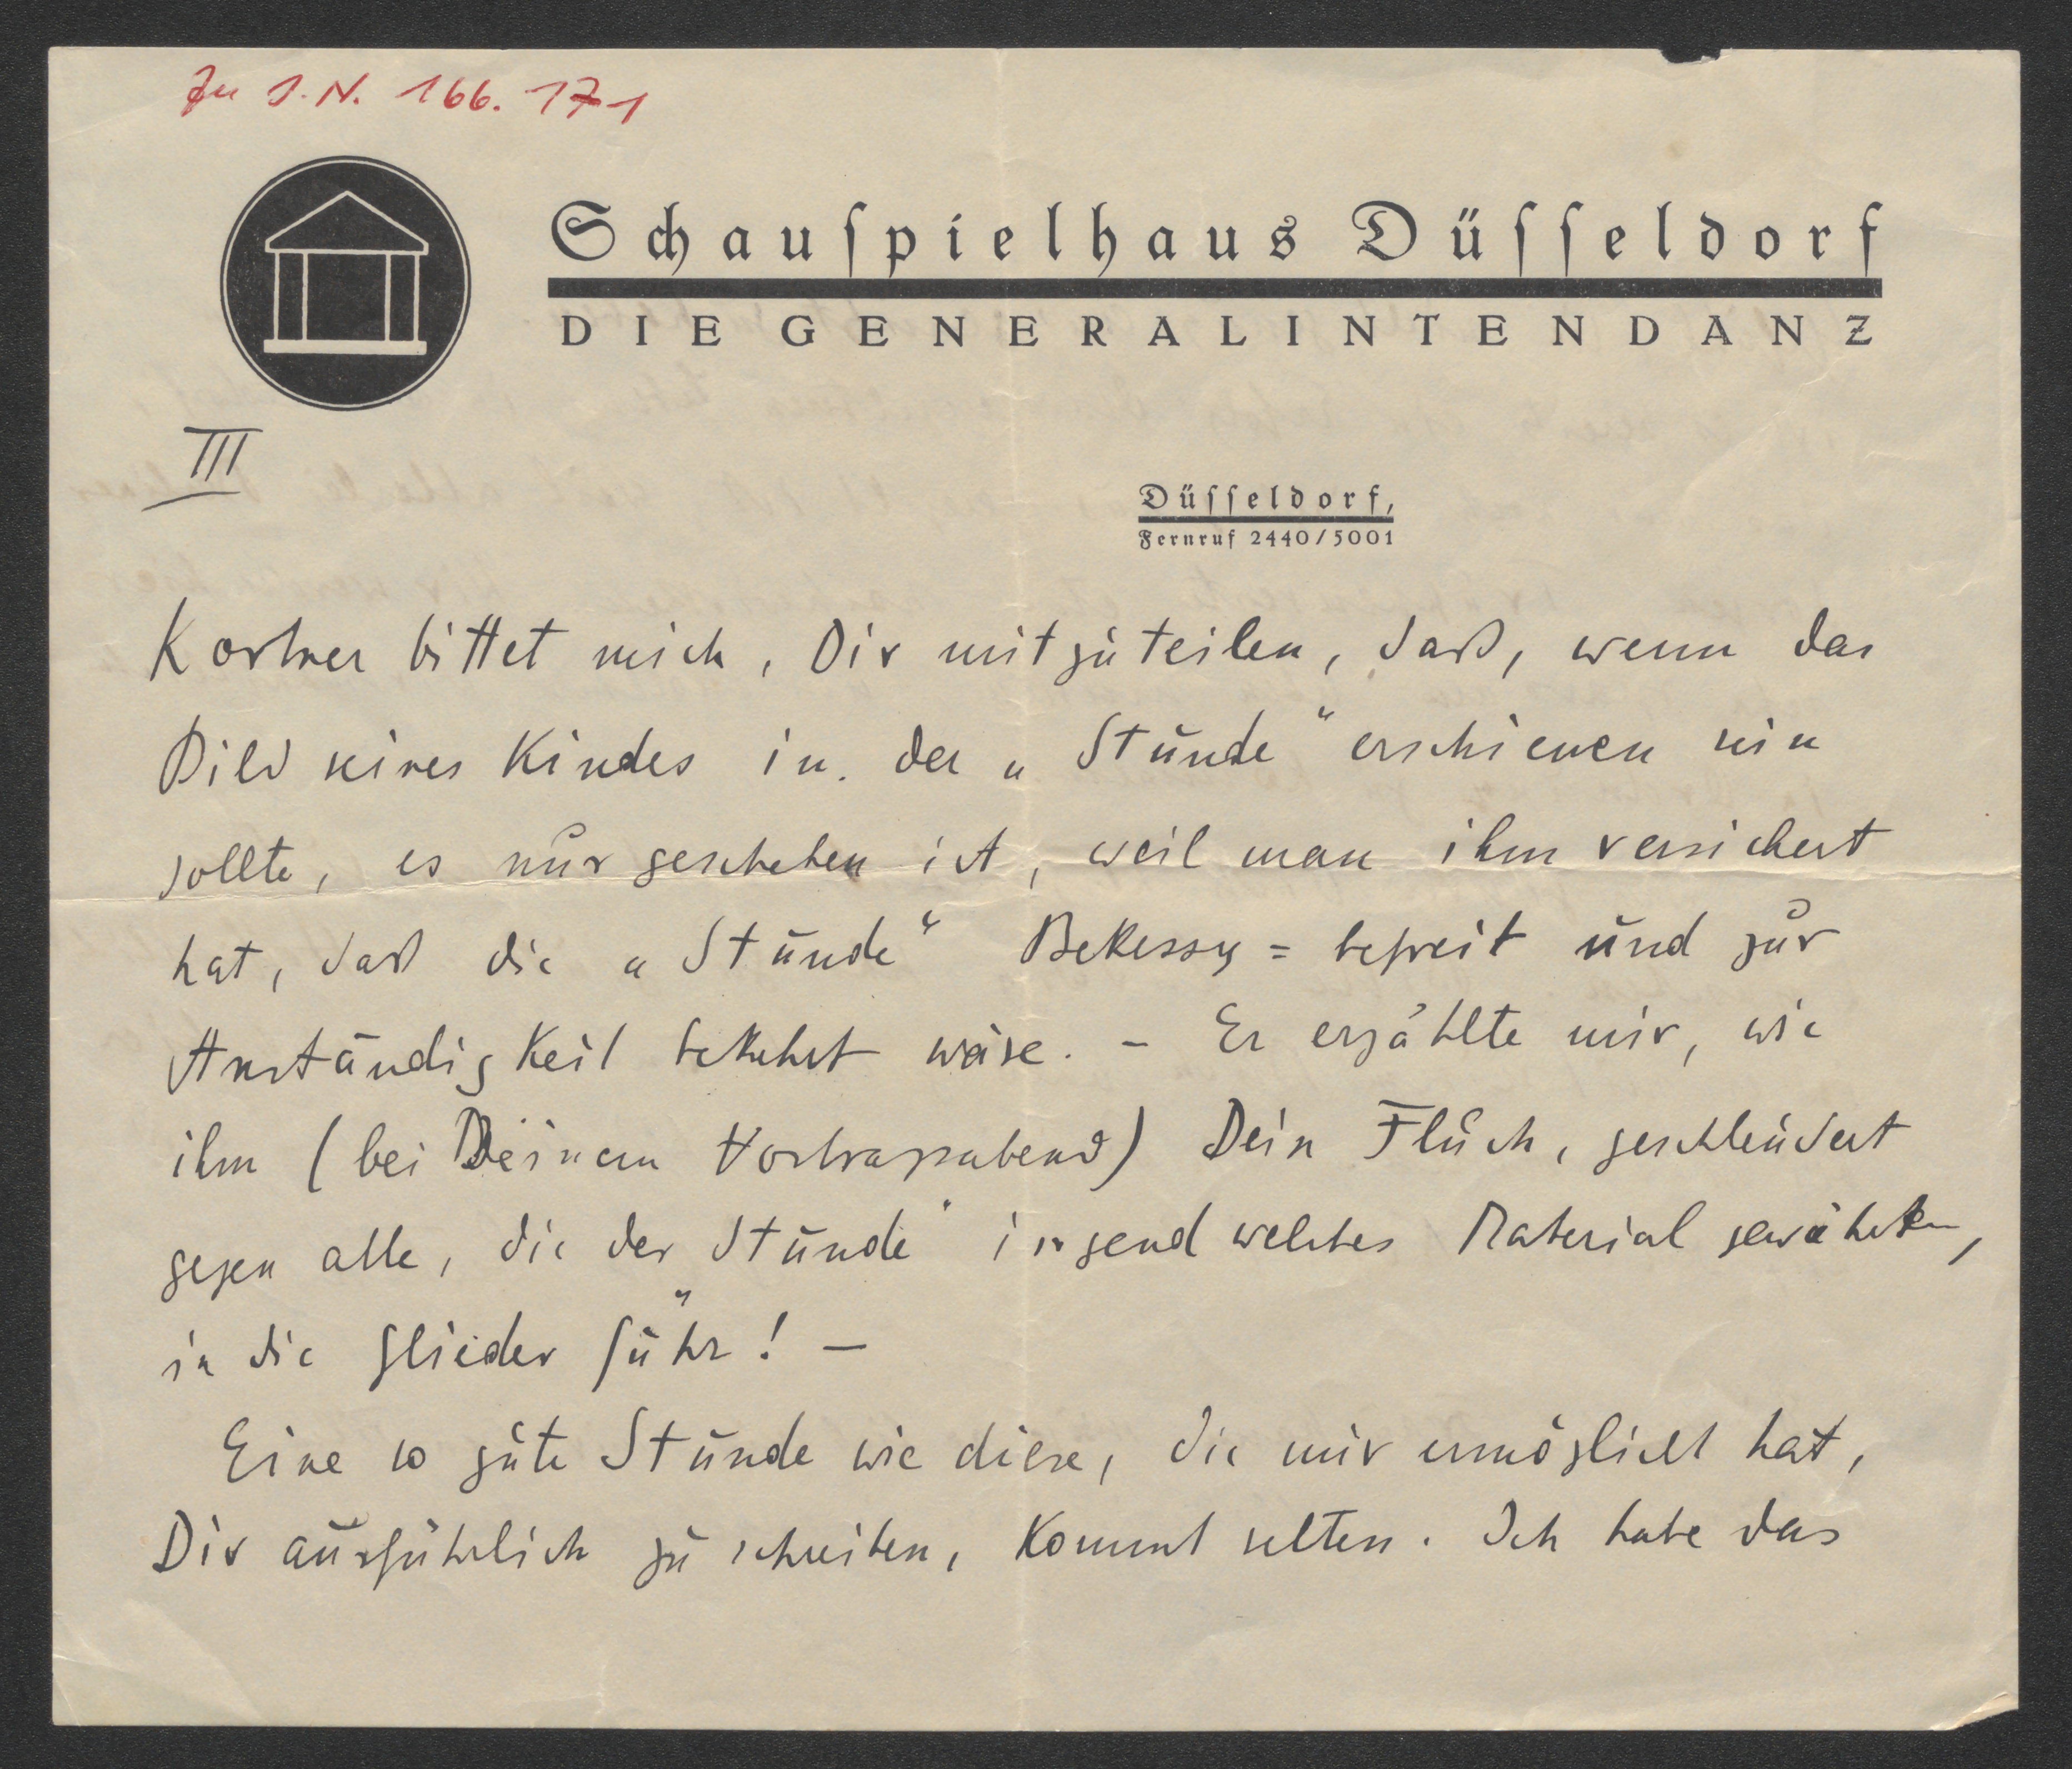 Zu I.N. 166.171
Schauſpielhaus Düſſeldorf
DIE GENERALINTENDANZ
III
Düſſeldorf,
Fernruf 2440/5001
Kortner bittet mich, Dir mitzuteilen, daß, wenn das
Bild seines Kindes in der „Stunde“ erschienen sein
sollte, es nur geschehen ist, weil man ihm versichert
hat, daß die „Stunde“ Bekessy=befreit und zur
Anständigkeit bekehrt wäre. – Er erzählte mir, wie
ihm (bei Deinem Vortragsabend) Dein Fluch, geschleudert
gegen alle, die der „Stunde“ irgend welches Material gewährten,
in die Glieder fuhr! –
Eine so gute Stunde wie diese, die mir ermöglicht hat,
Dir ausführlich zu schreiben, kommt selten. Ich habe das